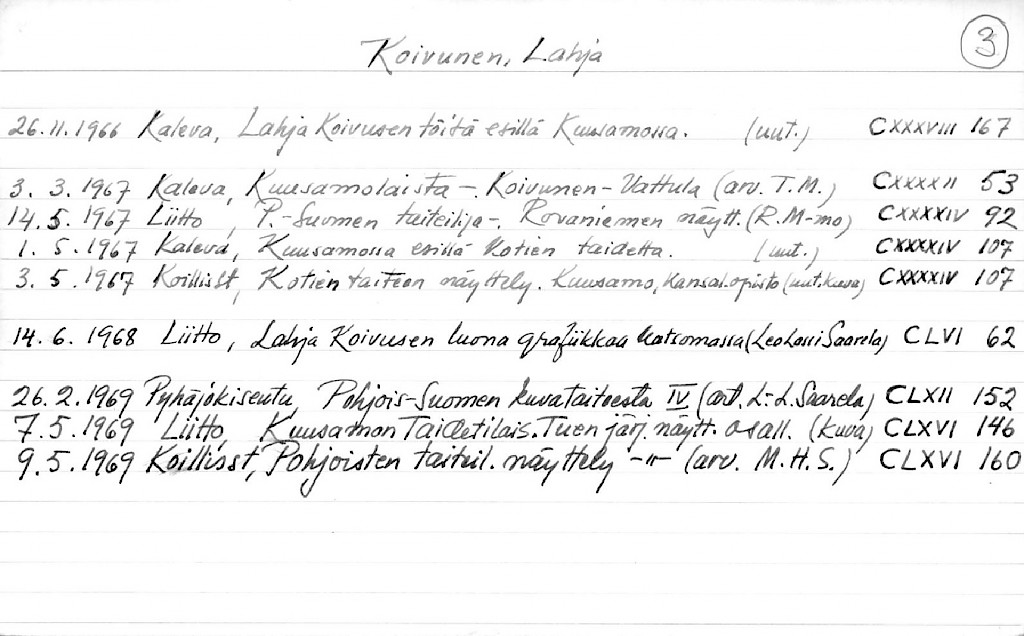 3
Koivunen, Lahja
26.11.1966 Kaleva, Lahja Koivusen töitä esillä Kuusamossa. (uut.) CXXXVIII 167
3. 3. 1967 Kaleva, Kuusamolaista -. Koivunen - Vattula (arv. T.M.) CXXXXII 53
14.5. 1967 Liitto, P.-Suomen taiteilija -. Rovaniemen näytt. (R.M-mo) CXXXXIV 92
1. 5. 1967 Kaleva, Kuusamossa esillä kotien taidetta. (uut.) CXXXXIV 107
3. 5. 1967 Koillisst, Kotien taiteen näyttely. Kuusamo, kansal.opisto (uut.kuva) CXXXXIV 107
14. 6. 1968 Liitto, Lahja Koivusen luona grafiikkaa katsomassa (Leo Lassi Saarela) CLVI 62
26.2.1969 Pyhäjokiseutu, Pohjois-Suomen kuvataiteesta IV (art. L.-L. Saarela) CLXII 152
7.5.1969 Liitto, Kuusamon Taidetilais. Tuen järj. näytt. osall. (kuva) CLXVI 146
9.5.1969 Koillisst, Pohjoisten taiteil. näyttely -"- (arv. M.H.S.) CLXVI 160